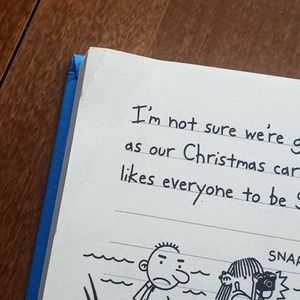 I'm not sure we're g
as our Christmas car
likes everyone to be
SNAP